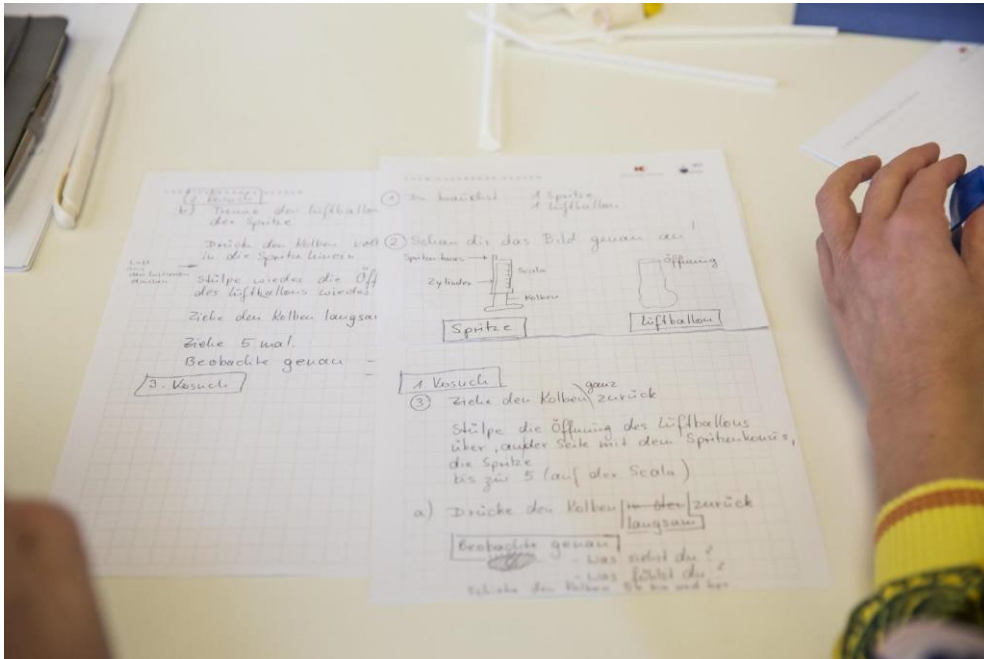 2. Versuch
b) Trenne den Luftballon
der Spritze
Drücke den Kolben
in die Spritze hinein
Luft
Stülpe wieder die Öff
des Luftballons wieder
Ziehe den Kolben langsam
Ziehe 5 mal.
Beobachte genau -
3. Vesuch
① Du brauchst 1 Spritze
1 Luftballon
② Schau dir das Bild genau an!
Spritzenkonus
Scala
Zylinder
Kolben
Öffnung
Spritze
Luftballon
1 Vesuch
③ Ziehe den Kolben ganz zurück
Stülpe die Öffnung des Luftballons
über, an der Seite mit dem Spritzenkonus,
die Spritze
bis zur 5 (auf der Scala)
a) Drücke den Kolben langsam zurück
Beobachte genau
- Was siehst du?
- Was fühlst du?
Schiebe den Kolben 5x hin und her